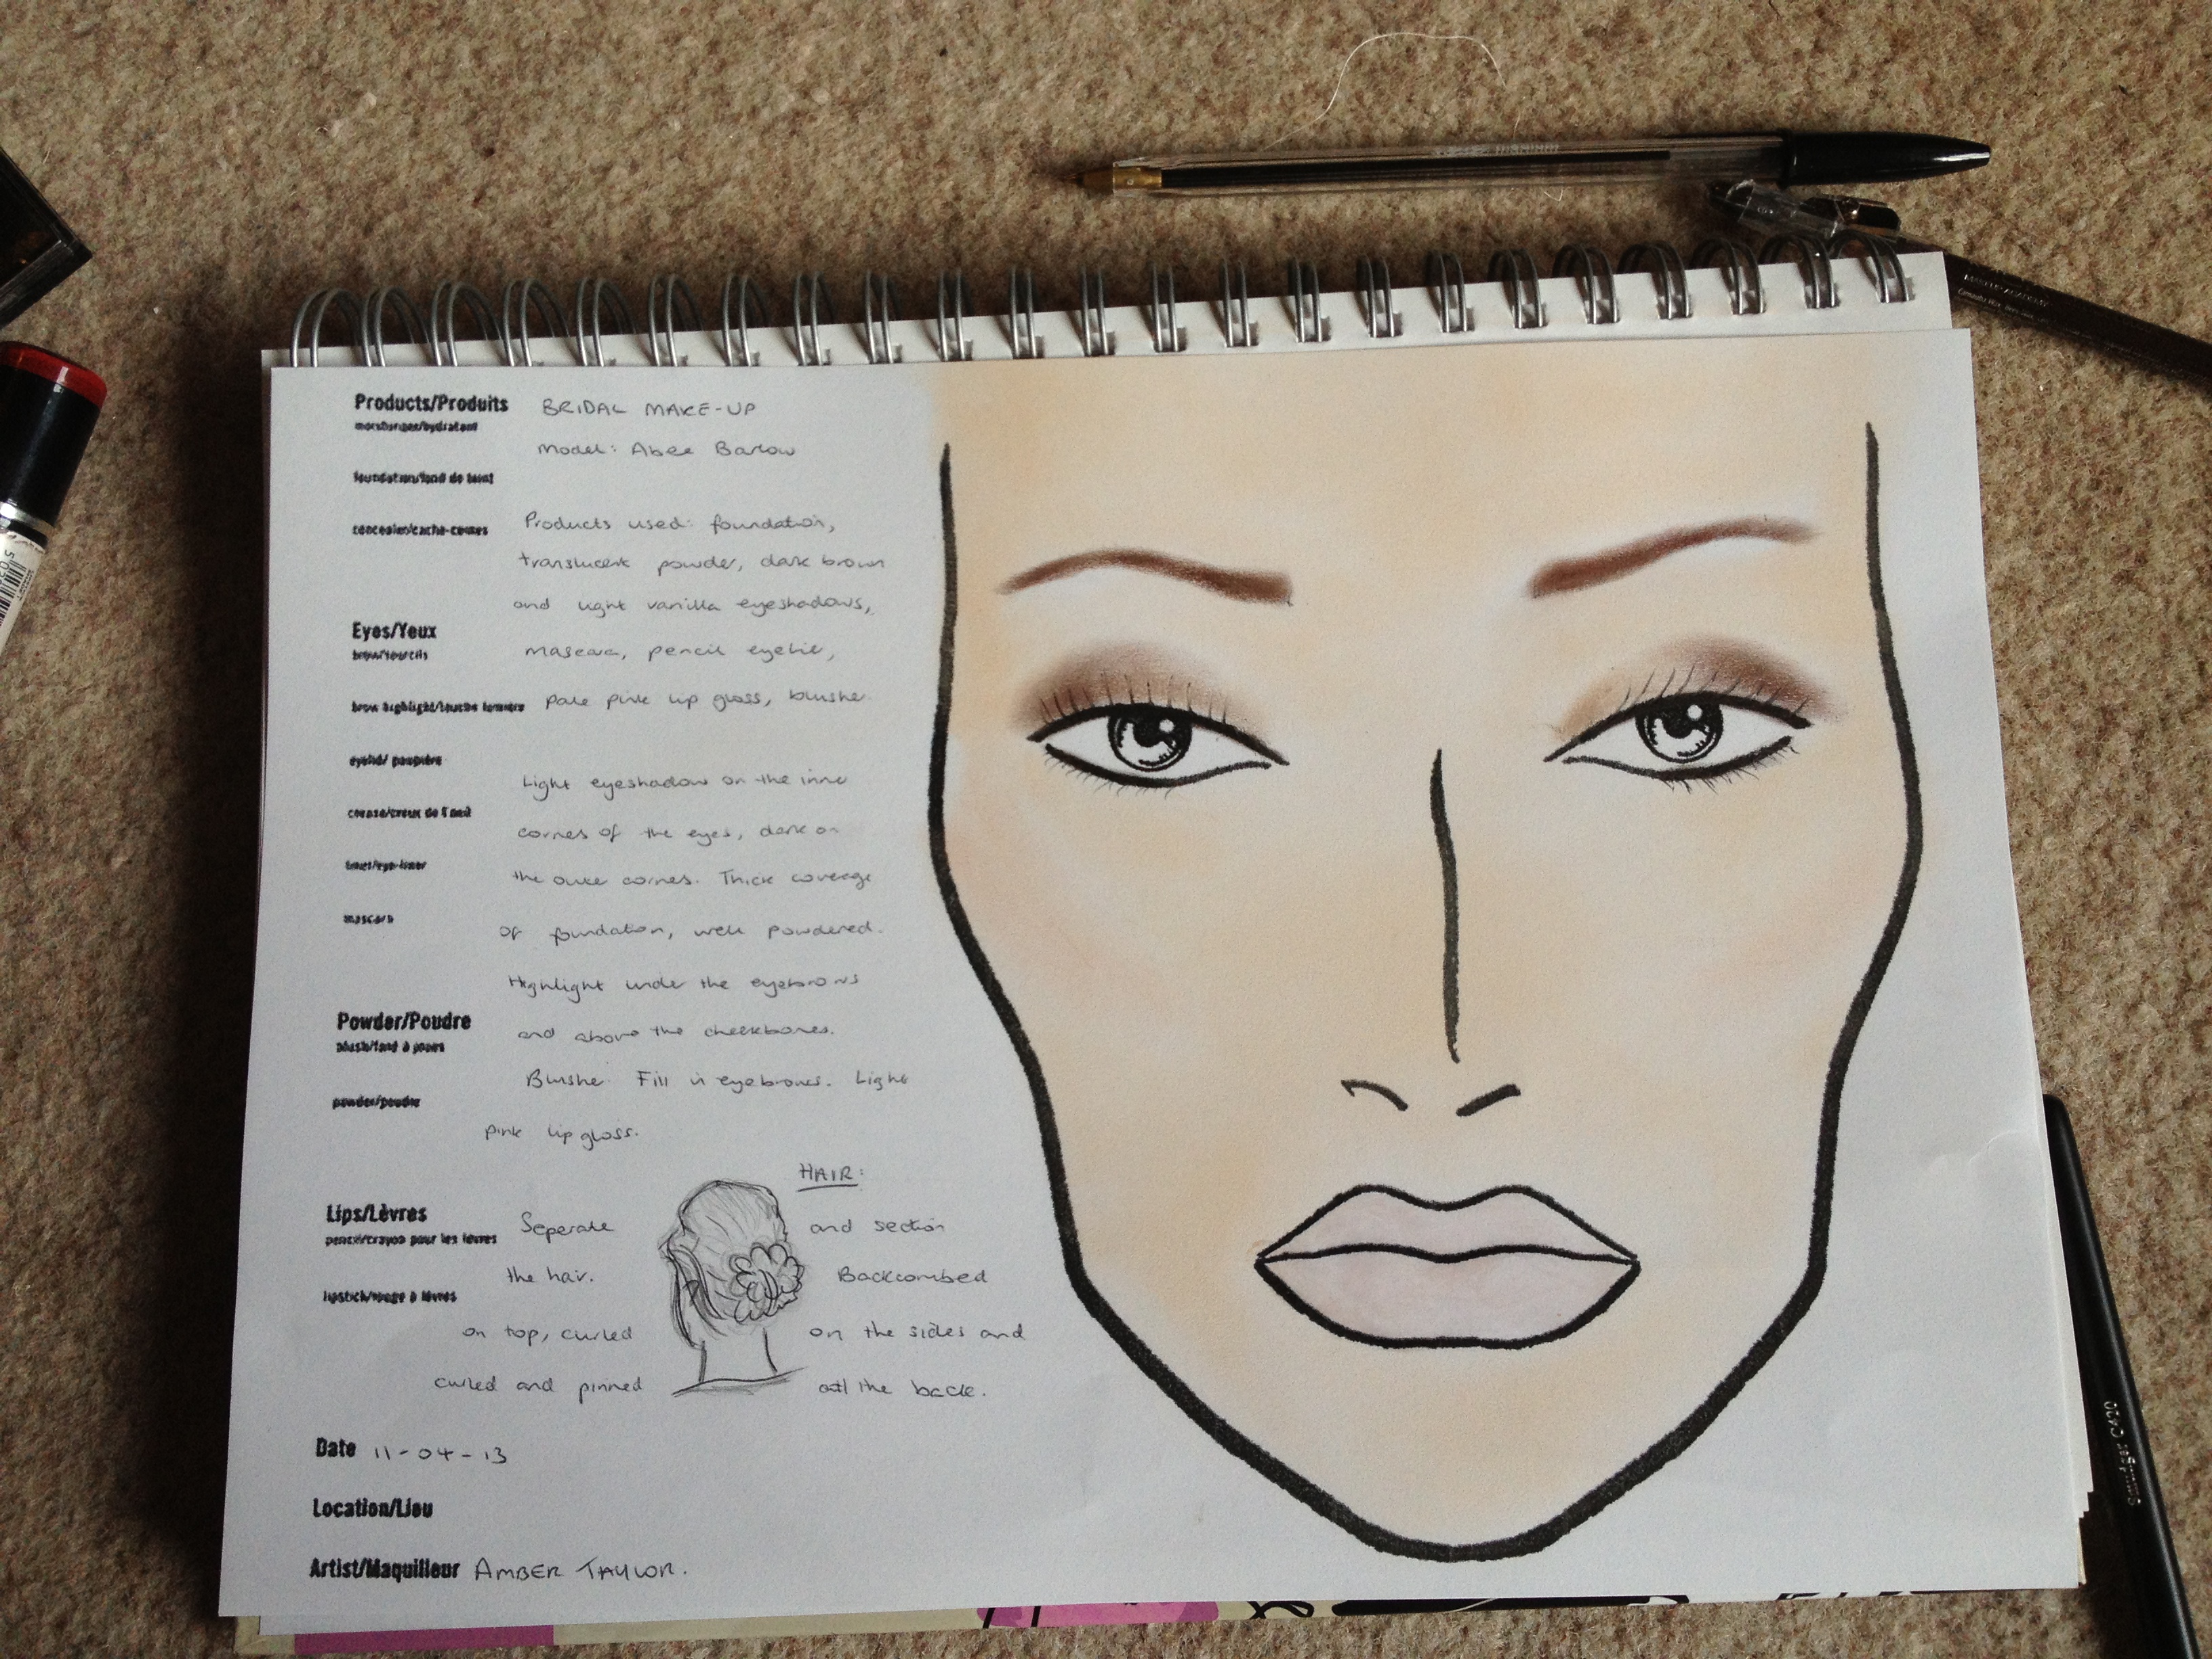 Products/Produits BRIDAL MAKE-UP
moisturizer/hydratant
Model: Abee Barlow
foundation/fond de teint
concealer/cache-cernes Products used: foundation,
translucent powder, dark brown
and light vanilla eyeshadows,
Eyes/Yeux
brow/sourcils mascara, pencil eyeline,
brow highlight/touche lumiere pale pink lip gloss, blusher
eyelid/ paupière
Light eyeshadow on the inner
crease/creux de l'oeil corners of the eyes, dark on
liner/eye-liner the outer corners. Thick coverage
mascara of foundation, well powdered.
Highlight under the eyebrows
Powder/Poudre and above the cheekbones.
blush/fard à joues
Blusher. Fill in eyebrows. Light
powder/poudre
pink lip gloss.
HAIR:
Lips/Lèvres Seperate and section
pencil/crayon pour les lèvres
the hair. Backcombed
lipstick/rouge à lèvres
on top, curled on the sides and
curled and pinned at the back.
Date 11-04-13
Location/Lieu
Artist/Maquilleur AMBER TAYLOR.
Smudger C420